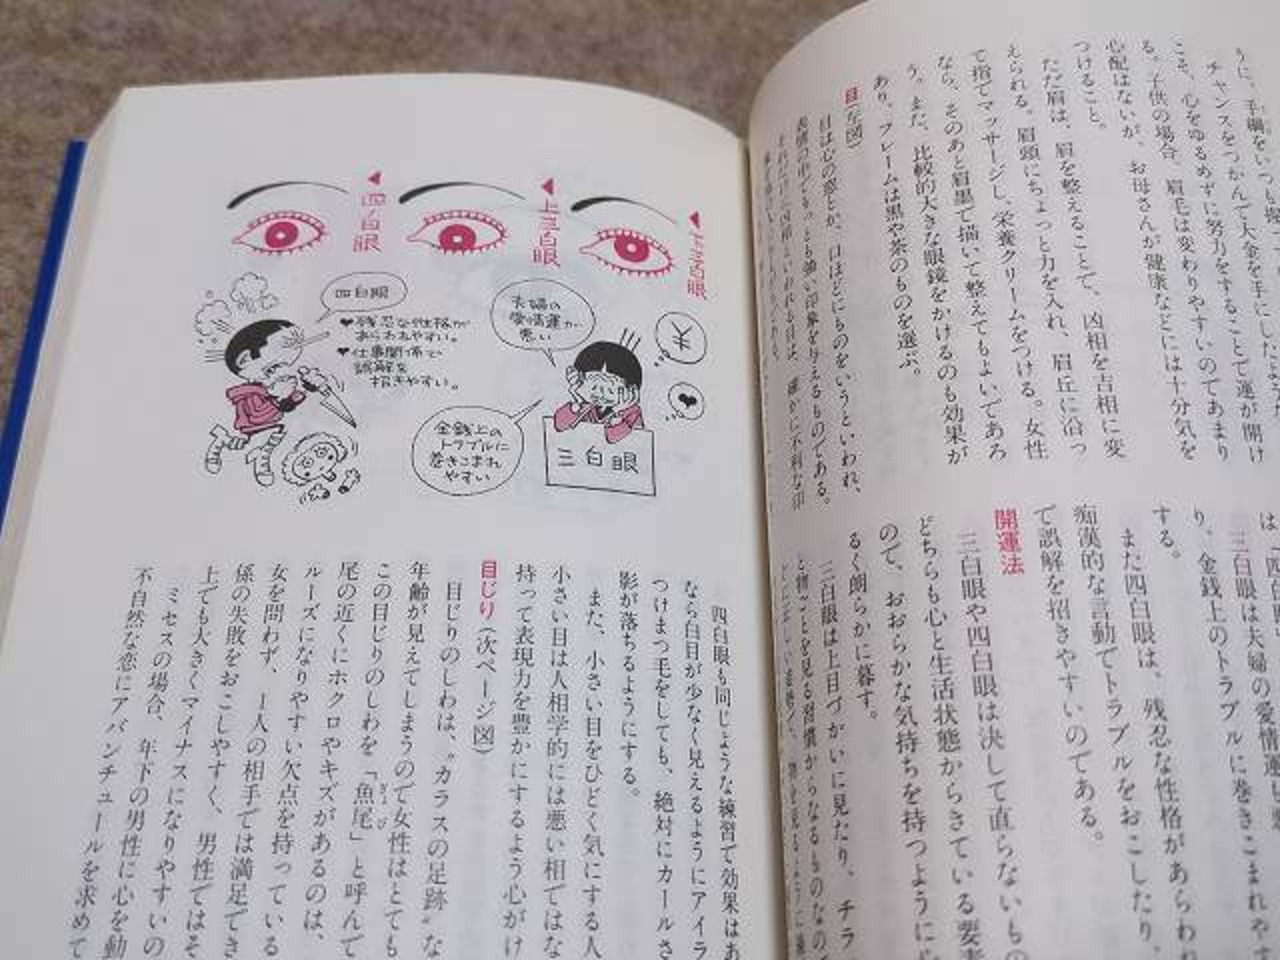 うに、手綱をいつも
チャンスをつかんで大金を手にした
こそ、心をゆるめずに努力をすることで運が開け
る。子供の場合、眉毛は変わりやすいのであまり
心配はないが、お母さんが健康などには十分気を
つけること。
ただ眉は、眉を整えることで、凶相を吉相に変
えられる。眉頭にちょっと力を入れ、眉丘に沿っ
て指でマッサージし、栄養クリームをつける。女性
なら、そのあと眉墨で描いて整えてもよいであろ
う。また、比較的大きな眼鏡をかけるのも効果が
あり、フレームは黒や茶のものを選ぶ。
目(左図)
目は心の窓とか、口ほどにものをいうといわれ、
表情の中でもっとも強い印象を与えるものである。
それだけに凶相といわれる目は、確かに不利な印
は「四白眼
三白眼は夫婦の愛情運
り、金銭上のトラブルに巻きこまれやす
する。
また四白眼は、残忍な性格があらわれ
痴漢的な言動でトラブルをおこしたり、
で誤解を招きやすいのである。
開運法
三白眼や四白眼は決して直らないもの
どちらも心と生活状態からきている要素
ので、おおらかな気持ちを持つように心
るく朗らかに暮す。
三白眼は上目づかいに見たり、チラ
と物ごとを見る習慣からなるものなの
下三白眼
上三白眼
四白眼
四白眼
♥残忍な性格が
あらわれやすい。
♥仕事関係で
誤解を
招きやすい。
夫婦の
愛情運が
悪い
夫
金銭上の
トラブルに
巻きこまれ
やすい
三白眼
四白眼も同じような練習で効果はあ
なら白目が少なく見えるようにアイラ
つけまつ毛をしても、絶対にカールさ
影が落ちるようにする。
また、小さい目をひどく気にする人
小さい目は人相学的には悪い相ではな
持って表現力を豊かにするよう心がけ
目じり(次ページ図)
目じりのしわは、〝カラスの足跡〟な
年齢が見えてしまうので女性はとても
この目じりのしわを「魚尾」と呼んで
尾の近くにホクロやキズがあるのは、
ルーズになりやすい欠点を持っている
女を問わず、一人の相手では満足でき
係の失敗をおこしやすく、男性ではそ
上でも大きくマイナスになりやすいの
ミセスの場合、年下の男性に心を動
不自然な恋にアバンチュールを求めて